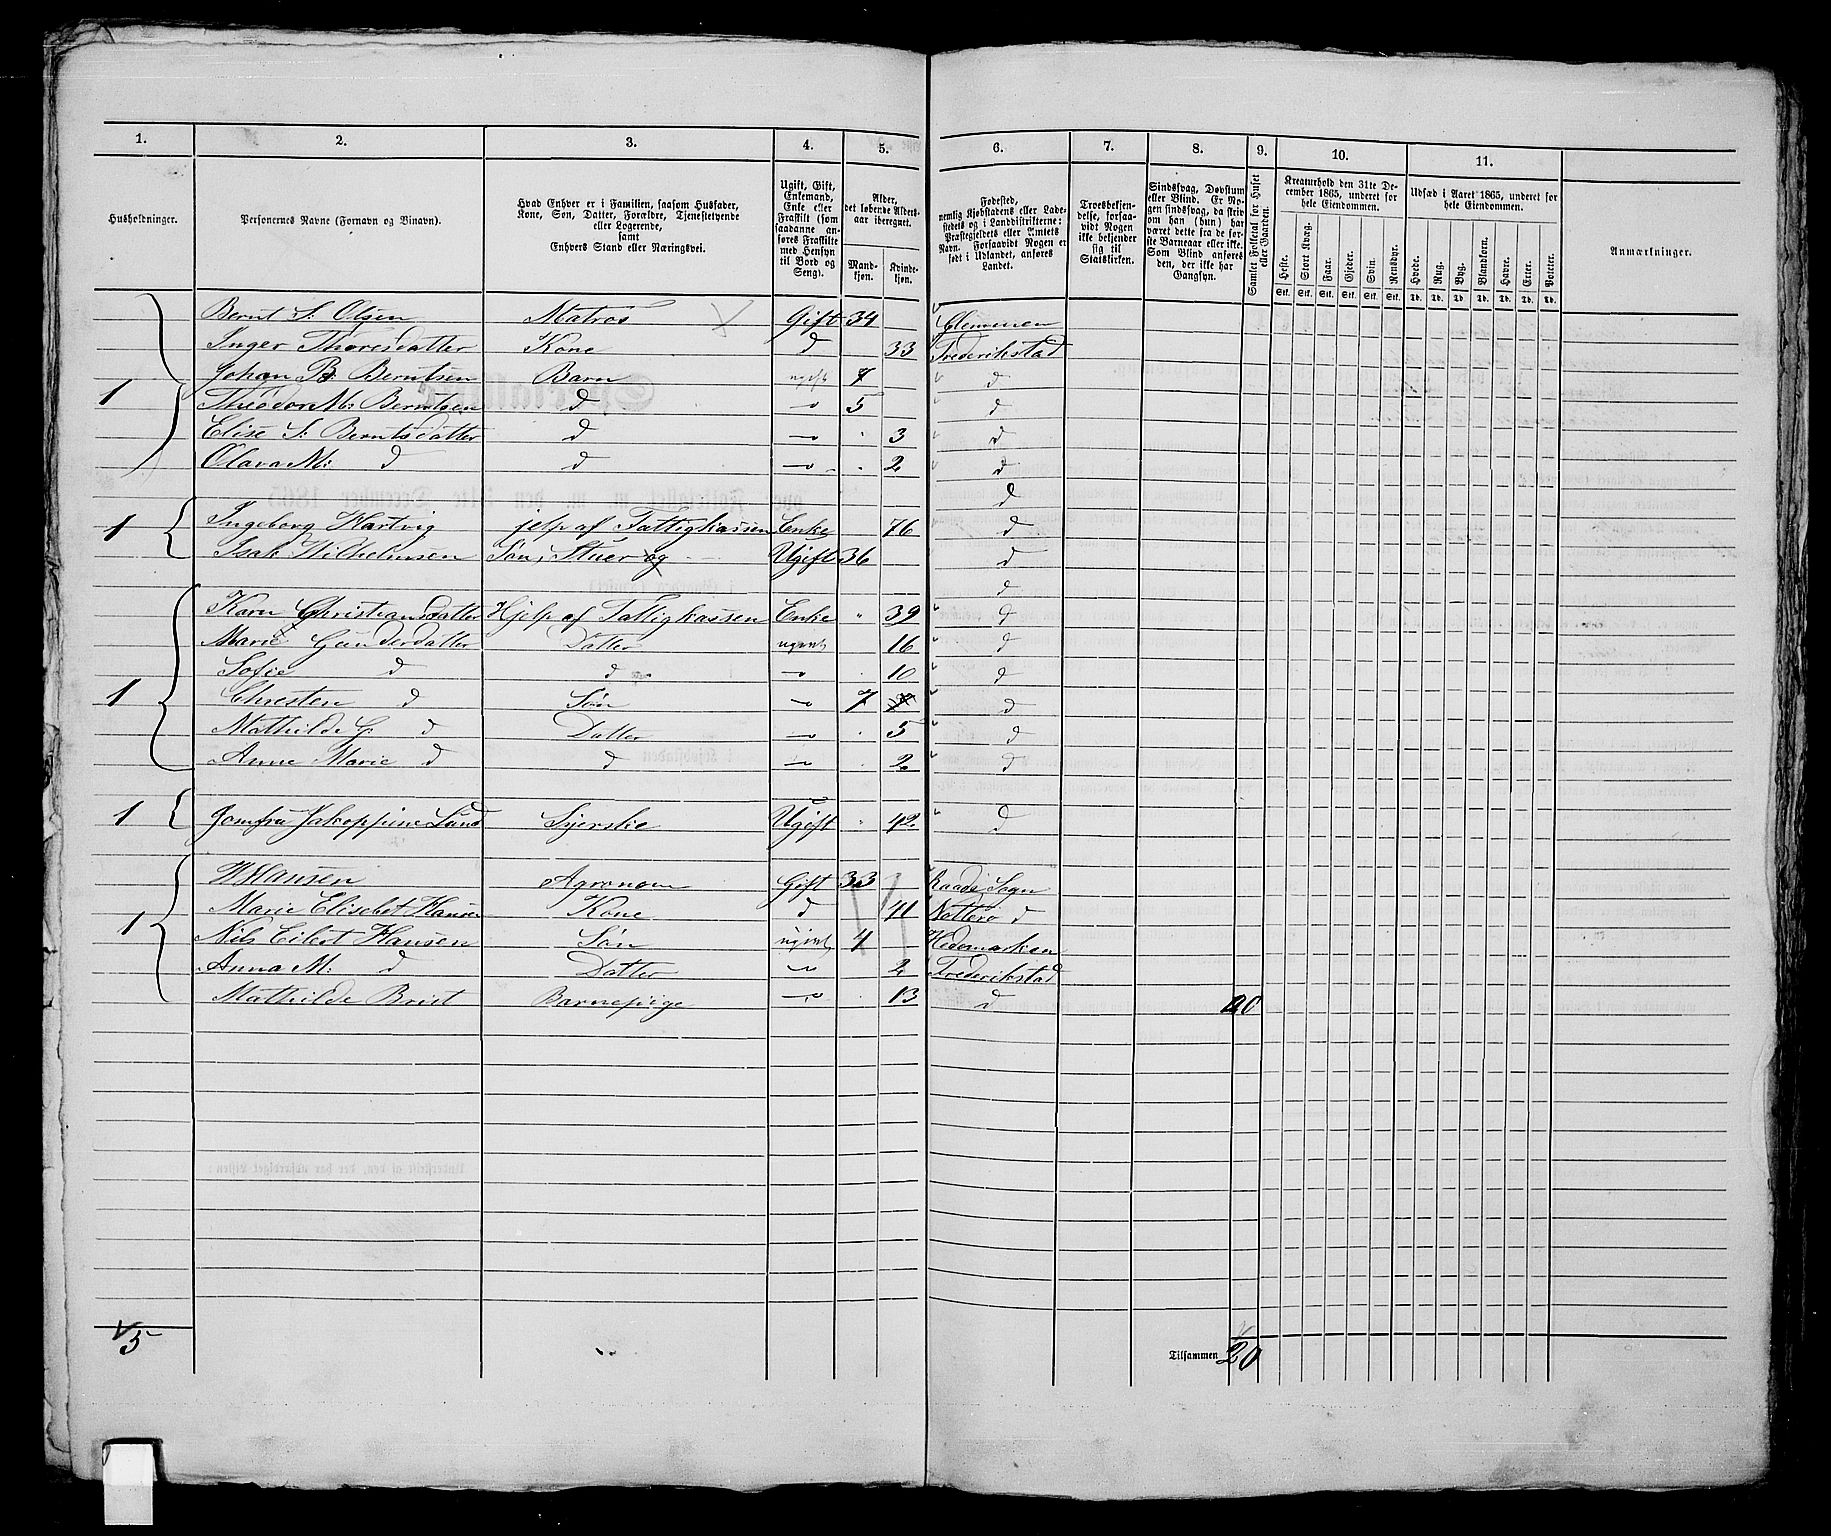 1. 2. 3. 4. 5. 6. 7. 8. 9. 10. 11.
Husholdninger.
Personernes Navne (Fornavn og Binavn).
Hvad Enhver er i Familien, saasom Husfader,
Kone, Søn, Datter, Forældre, Tjenestetyende
eller Logerende,
samt
Enhvers Stand eller Næringsvei.
Ugift, Gift,
Enkemand,
Enke eller
Fraskilt (som
saadanne an-
føres Fraskilte
med Hensyn
til Bord og
Seng).
Alder,
det løbende Alders-
aar iberegnet.
Mand-
kjøn.
Kvinde-
kjøn.
Fødested,
nemlig Kjøbstadens eller Lade-
stedets og i Landdistrikterne:
Præstegjeldets eller Amtets
Navn. Forsaavidt Nogen er
født i Udlandet, anføres
Landet.
Troesbekjen-
delse, forsaa-
vidt Nogen
ikke bekjender
sig til
Statskirken.
Sindssvag, Døvstum
eller Blind. Er No-
gen sindssvag, da skriv
om han (hun) har
været dette fra de før-
ste Barneaar eller ikke.
Som Blind anføres
den, der ikke har
Gangsyn.
Samlet Folketal for Huset
eller Gaarden.
Kreaturhold den 31te De-
cember 1865, underet for
hele Eiendommen.
Heste. Stort Kvæg. Faar. Gjeder. Svin. Rensdyr.
Stk. Stk. Stk. Stk. Stk. Stk.
Udsæd i Aaret 1865, underet for
hele Eiendommen.
Hvede. Rug. Byg. Blandkorn. Havre. Erter. Poteter.
Td. Td. Td. Td. Td. Td. Td.
Anmærkninger.
Bernt S. Olsen Matros Gift 34 Glemmen
Inger Thoresdatter Kone d 33 Frederikstad
Johan B. Berntsen Barn ugift 7 d
1 Theodor M: Berntsen d 5 d
Elise S: Berntsdatter d 3 d
Olava M: d d 2 d
d
1 Ingeborg Hartvig hjelp af Fattigkassen Enke 76 d
Isak Wilhelmsen Søn, Stuer og Ugift 36 d
d
Karn Christiansdatter Hjelp af Fattigkassen Enke 39 d
Marie Gundersdatter Datter ugivt 16 d
Sofie d d 10 d
1 Chresten d Søn 7 7 d
Mathilde G. d Datter 5 d
Anne Marie d d 2 d
1 Jomfru Jakoppine Lund Syerske Ugift 42 d
Hansen Agronom Gift 33 Raade Sogn
1 Marie Elisebet Hansen Kone d 41 d
Nils Eibert Hansen Søn ugivt 4 Hedemarken
Anna M: d Datter 2 Frederikstad
Mathilde Brist Barnepige 13 d 20
5 Tilsammen 20